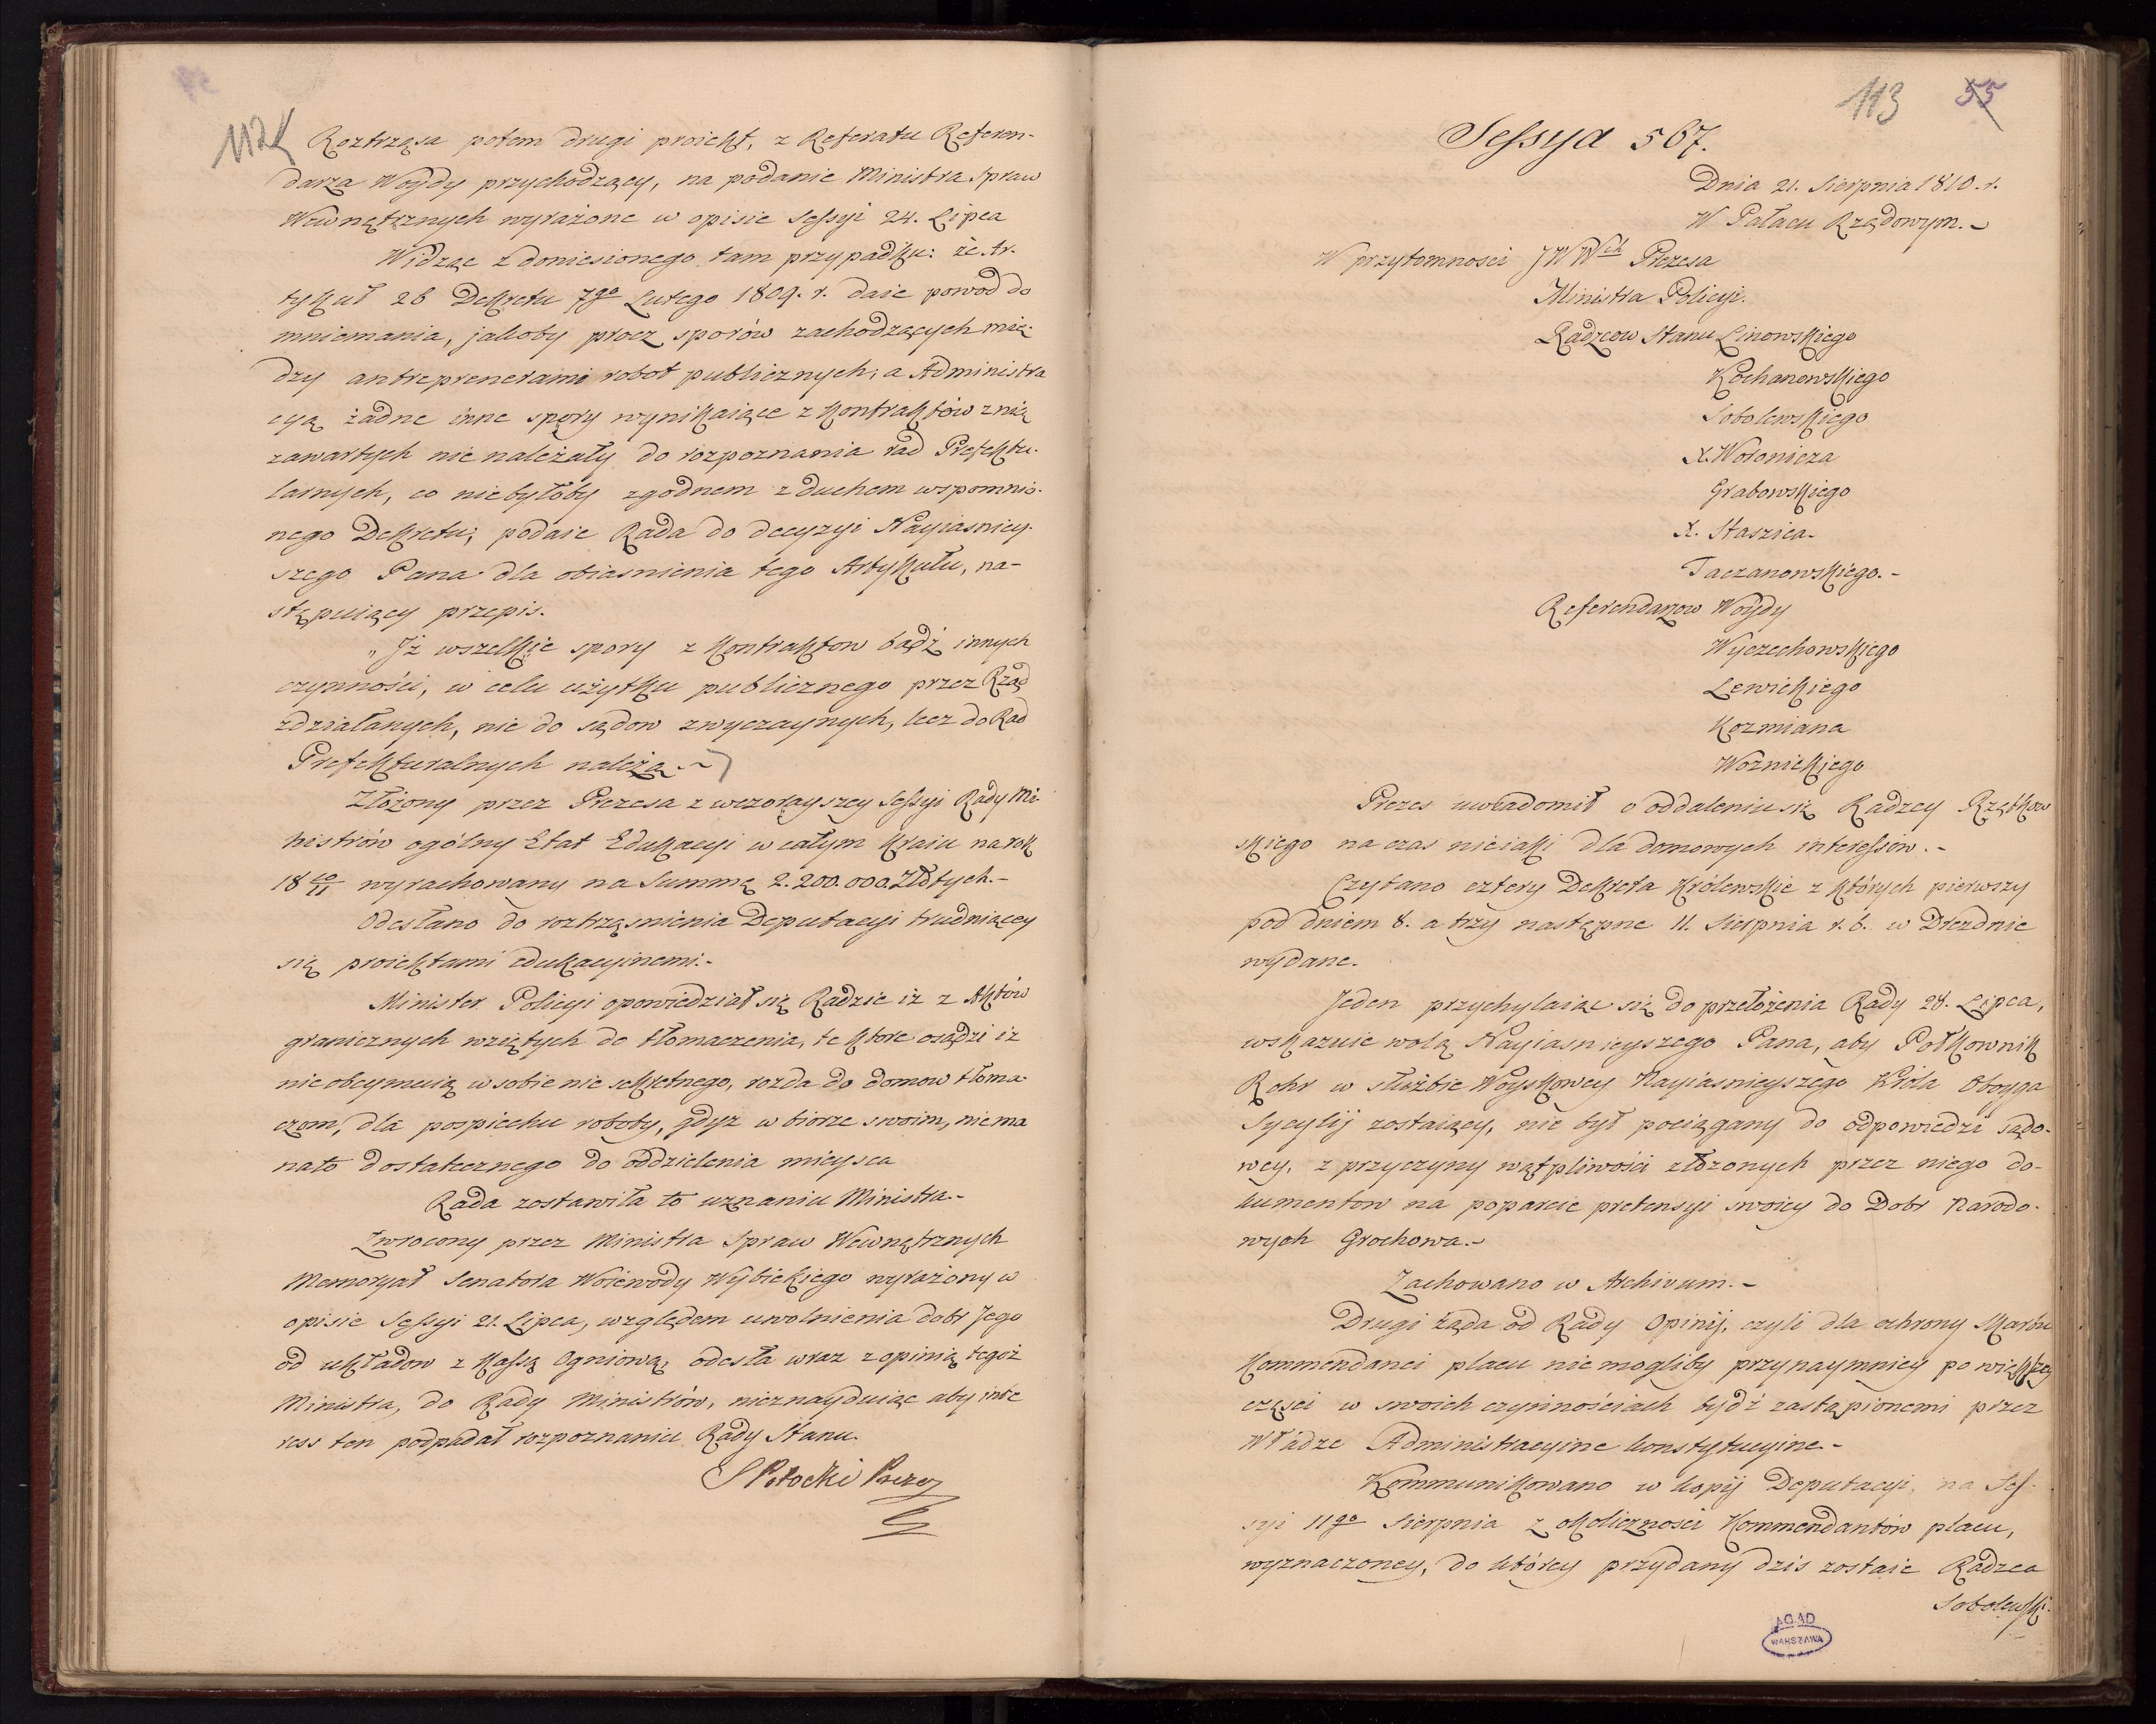 112
Roztrząsa potem drugi proiekt, z Referatu Referen-
darza Woydy przychodzący, na podanie Ministra Spraw
Wewnętrznych wyrażone w opisie Sessyi 24. Lipca
Widząc z doniesionego tam przypadku: że Ar-
tykuł 26 Dekretu 7go Lutego 1809. r. daie powod do
mniemania, jakoby procz sporów zachodzących mię-
dzy antreprenerami robot publicznych, a Administra
cyą żadne inne spory wynikaiące z Kontraktów z nią
zawartych nie należały do rozpoznania rad Prefektu-
larnych, co niebyłoby zgodnem z duchem wspomnio-
nego Dekretu; podaie Rada do decyzyi Nayiasniey-
szego Pana dla obiasnienia tego Artykułu, na-
stępuiący przepis.
„Iż wszelkie spory z Kontraktow bądź innych
czynności, w celu użytku publicznego przez Rząd
zdziałanych, nie do sądow zwyczaynych, lecz do Rad
Prefekturalnych należą.
Złożony przez Prezesa z wczorayszey Sessyi Rady Mi-
nistrów ogólny Etat Edukacyi w całym Kraiu na rok
18 10/11 wyrachowany na Summę 2.200.000. Złotych.-
Odesłano do roztrząśnienia Deputacyi trudniącey
się proiektami edukacyinemi.-
Minister Policyi opowiedział się Radzie iż z Aktów
granicznych wziętych do tłomaczenia, te które osądzi iż
nieobeymuią w sobie nic sekretnego, rozda do domow tłoma-
czom, dla pospiechu roboty, gdyż w biorze swoim, nie ma
na to dostatecznego do oddzielenia mieysca
Rada zostawiła to uznaniu Ministra.-
Zwrocony przez Ministra Spraw Wewnętrznych
Memoryał Senatora Woiewody Wybickiego wyrażony w
opisie Sessyi 21. Lipca, względem uwolnienia dobr Jego
od układow z Kassą Ogniową, odesła wraz z opinią tegoż
Ministra, do Rady Ministrów, nieznayduiąc aby inte
ress ten podpadał rozpoznaniu Rady Stanu.
S Potocki Prezes
113 55
Sessya 567.
Dnia 21. Sierpnia 1810. r.
W Pałacu Rządowym.-
W przytomnosci JWWch Prezesa
Ministra Policyi.
Radzcow Stanu Linowskiego
Kochanowskiego
Sobolewskiego
X. Woronicza
Grabowskiego
X. Staszica-
Taczanowskiego.-
Referendarzow Woydy
Wyczechowskiego
Lewickiego
Kozmiana
Woznickiego
Prezes uwiadomił o oddaleniu się Radzcy Rzętkow
skiego na czas nieiaki dla domowych interessów.-
Czytano cztery Dekreta Królewskie z których pierwszy
pod dniem 8. a trzy następne 11. Sierpnia r. b. w Dreznie
wydane.
Jeden przychylaiąc się do przełożenia Rady 28. Lipca,
wskazuie wolą Nayiasnieyszego Pana, aby Połkownik
Rohr w służbie Woyskowey Nayiasnieyszego Króla Oboyga
Sycylij zostaiący, nie był pociągany do odpowiedzi sądo-
wey, z przyczyny wątpliwości złożonych przez niego do-
kumentow na poparcie pretensyi swoiey do Dobr Narodo-
wych Grochowa.-
Zachowano w Archivum.-
Drugi żąda od Rady Opinij, czyli dla ochrony Skarbu
Kommendanci placu nie mogliby przynaymniey po większey
części w swoich czynnościach bydź zastąpionemi przez
Władze Administracyine konstytucyine-
Kommunikowano w kopij Deputacyi, na Ses-
syi 11go Sierpnia z okoliczności Kommendantów placu,
wyznaczoney, do którey przydany dzis zostaie Radzca
Sobolewski.
AGAD
WARSZAWA